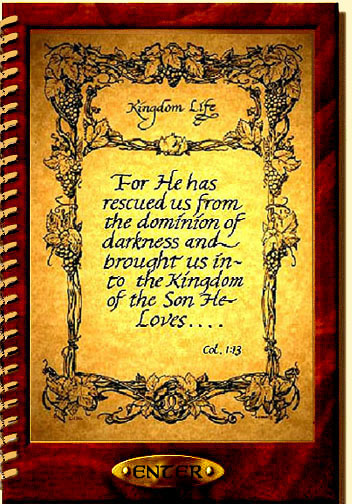 Kingdom Life
For He has
rescued us from
the dominion of
darkness and
brought us in-
to the Kingdom
of the Son He
Loves....
Col. 1:13
ENTER